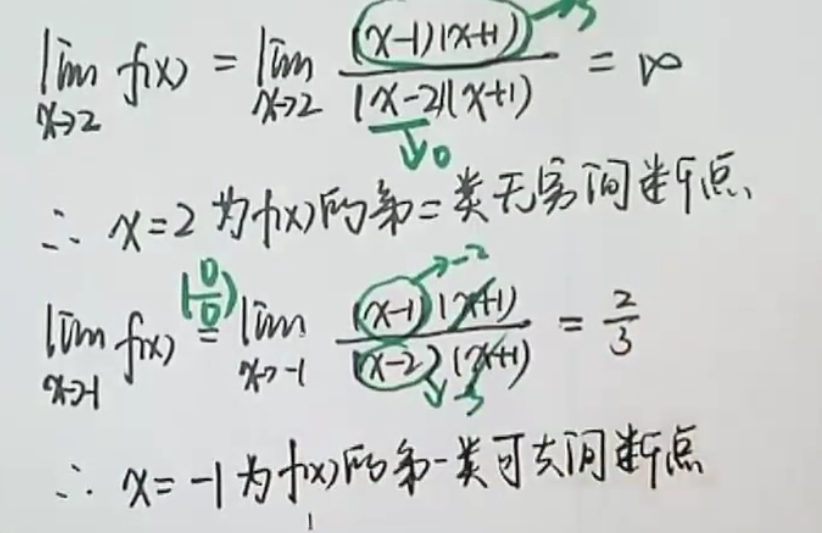 lim x→2 f(x) = lim x→2 (x-1)(x+1) / (x-2)(x+1) = ∞
→3
↓0
∴ x=2为f(x)的第二类无穷间断点
lim x→-1 f(x) (0/0) = lim x→-1 (x-1)(x+1) / (x-2)(x+1) = 2/3
→-2
↓-3
∴ x=-1为f(x)的第一类可去间断点